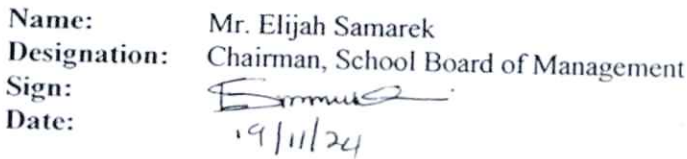 Name: Mr. Elijah Samarek
Designation: Chairman, School Board of Management
Sign:
Date: 19/11/24